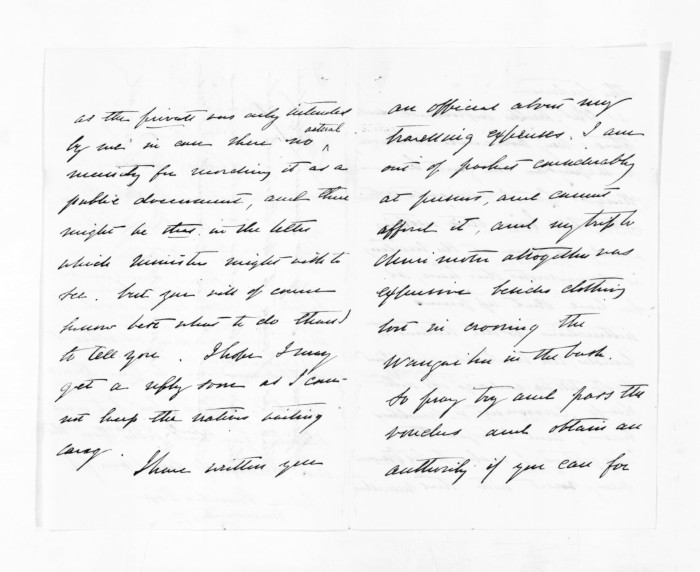 as the private was only intended
by me in case there no actual
necessity for recording it as a
public document, and there
might be that in the letter
which Minister might wish to
see. but you will of course
know best what to do than I
to tell you. I hope I may
get a reply soon as I can-
not keep the natives waiting
long.
I have written you
an official about my
travelling expenses. I am
out of pocket considerably
at present, and cannot
afford it, and my trip to
altogether was
expensive besides clothing
lost in crossing the
in the bush.
So pray try and pass the
voucher and obtain an
authority if you can for